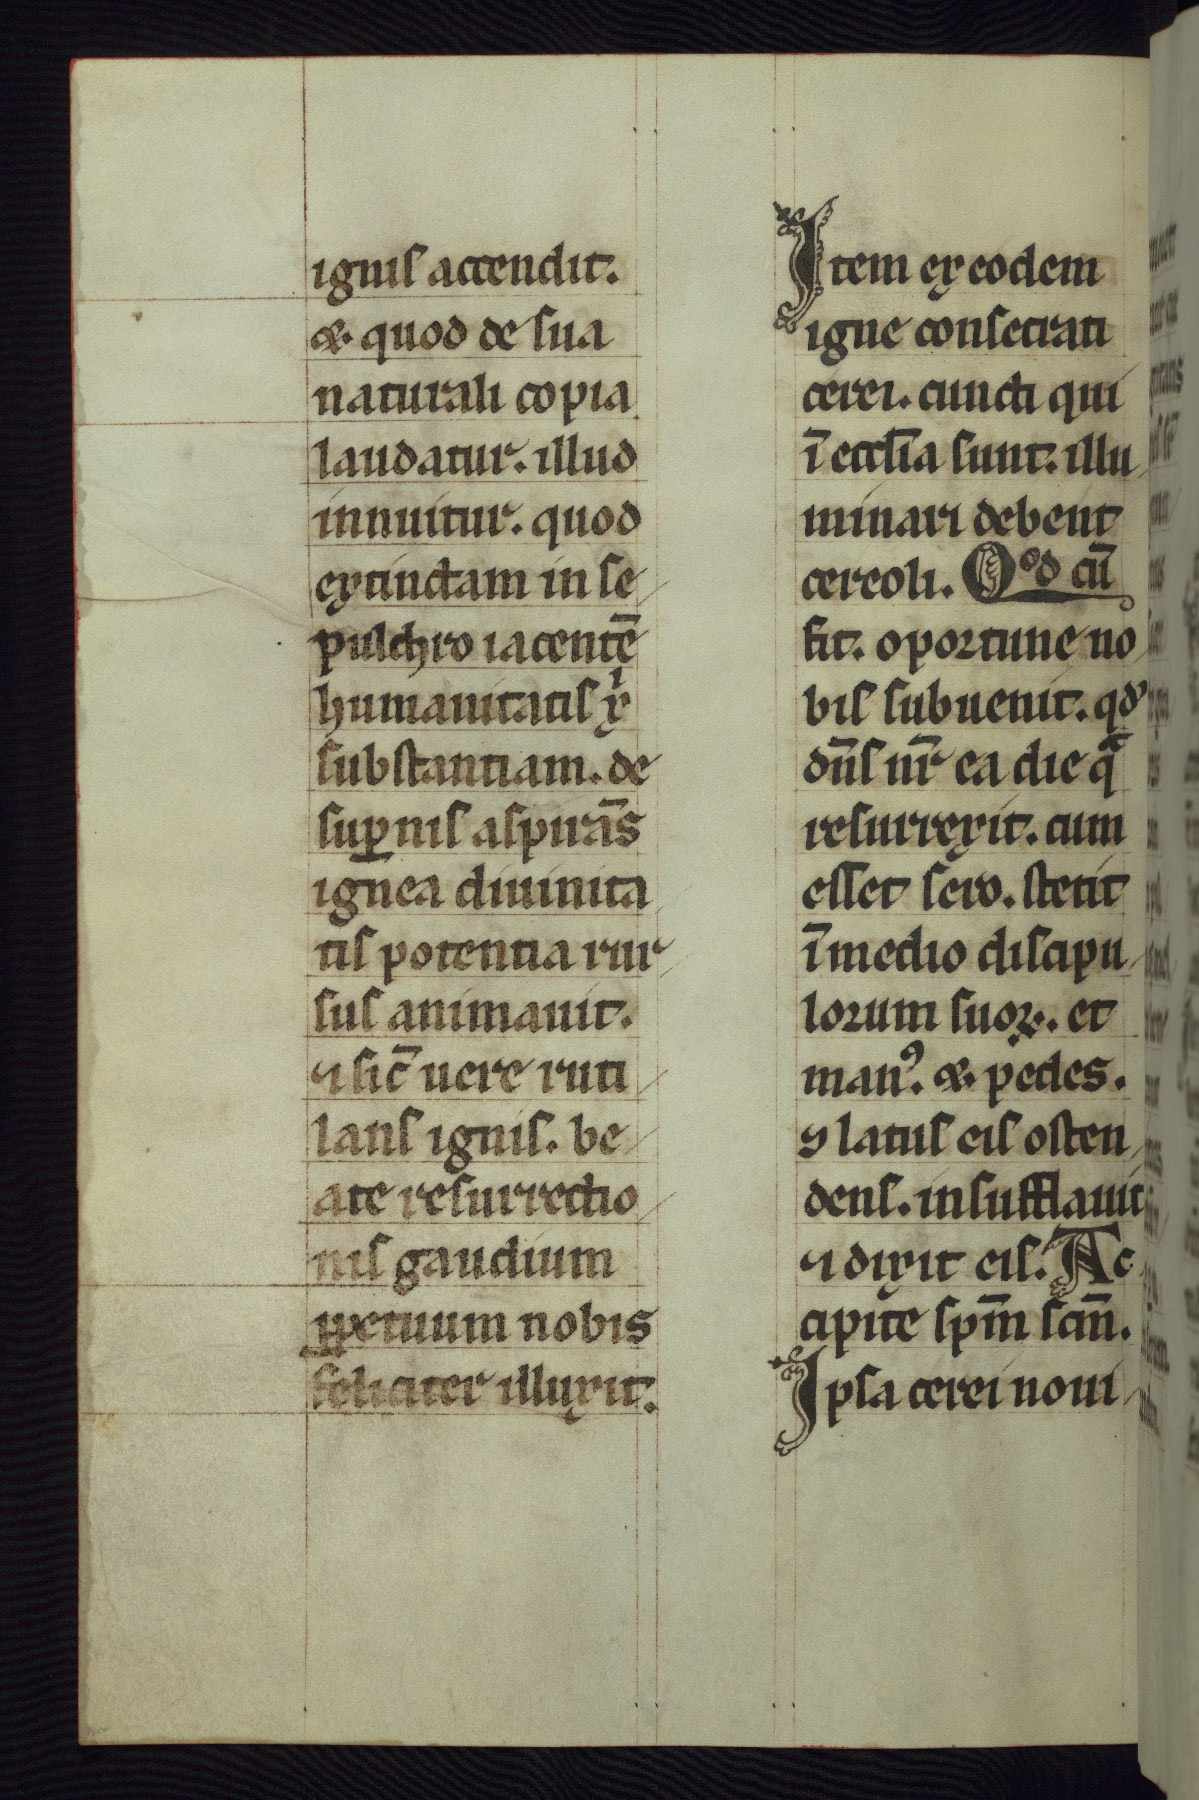 ignis accendit.
&. quod de sua
naturali copia
laudatur. illud
innuitur. quod
extinctam in se
pulchro iacentē
humanitatis xͥ
substantiam. de
suꝑnis aspirās
ignea diuinita
tis potentia rur
sus animauit.
⁊ sic̄ uere ruti
lans ignis. be
ate resurrectio
nis gaudium
ꝑpetuum nobis
feliciter illuxit.
Item ex eodem
igne consecrati
cerei. cuncti qui
ī eccl̄ia sunt. illu
minari debent
cereoli. Qod cū
fit. oportune no
bis subuenit. qd'
dn̄s nr̄ ea die qͣ
resurrexit. cum
esset sero. stetit
ī medio discipu
lorum suoꝝ. et
manꝰ. &. pedes.
ꝯ latus eis osten
dens. insufflauit
⁊ dixit eis. Ac
cipite sp̄m sc̄m.
Ipsa cerei noui